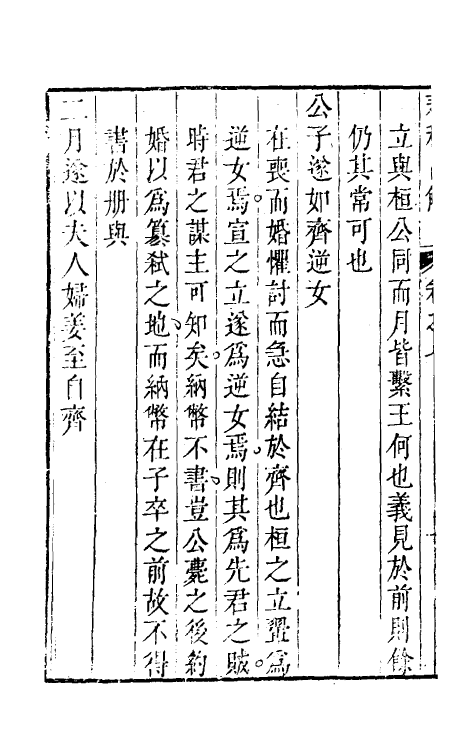 立與桓公同而月皆繫王何也義見於前則餘
仍其常可也
公子遂如齊逆女
在喪而婚懼討而急自結於齊也桓之立翬爲
逆女焉宣之立遂爲逆女焉則其爲先君之賊
時君之謀主可知矣納幣不書豈公薨之後約
婚以爲篡弑之地而納幣在子卒之前故不得
書於册與
二月遂以夫人婦姜至自齊